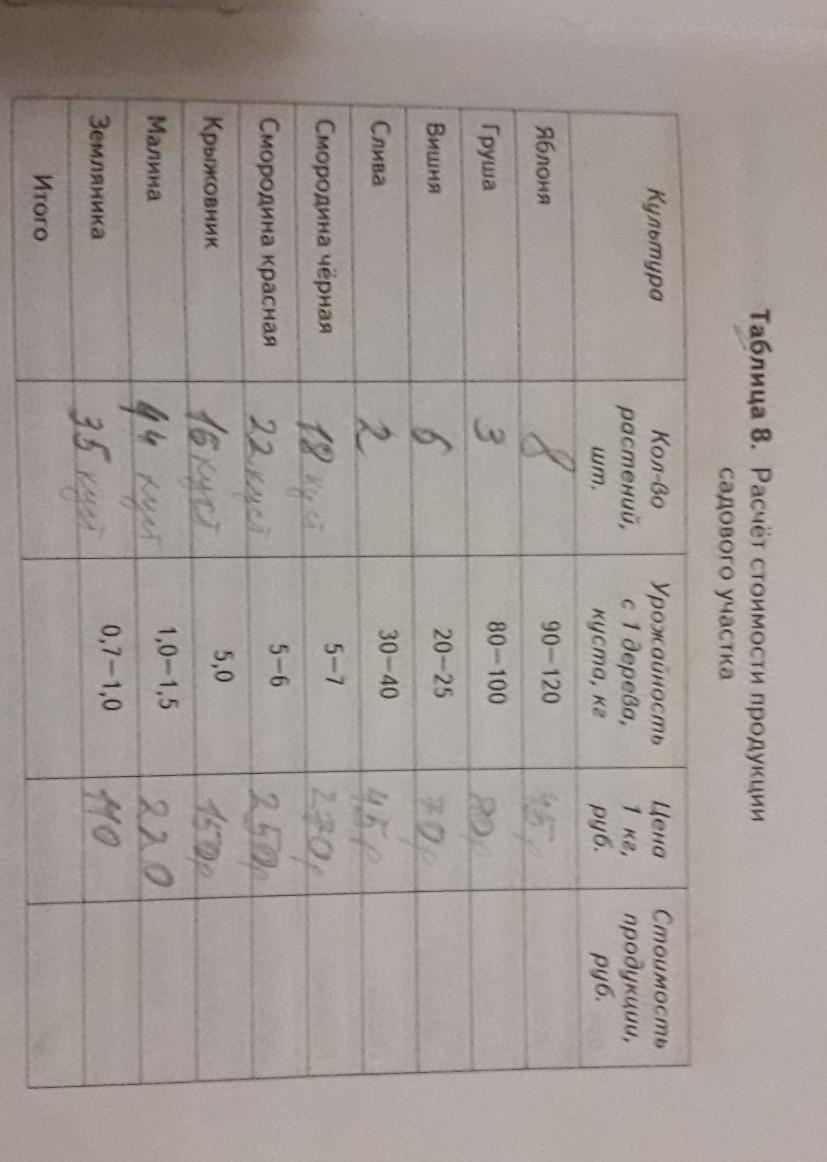 Таблица 8. Расчёт стоимости продукции
садового участка
Культура Кол-во растений, шт. Урожайность с 1 дерева, куста, кг Цена 1 кг, руб. Стоимость продукции, руб.
Яблоня 8 90–120 45 р
Груша 3 80–100 80р
Вишня 6 20–25 70р
Слива 2 30–40 45р
Смородина чёрная 18 куст 5–7 270р
Смородина красная 22 куст 5–6 250р
Крыжовник 16 куст 5,0 150р
Малина 44 куст 1,0–1,5 220
Земляника 35 куст 0,7–1,0 110
Итого